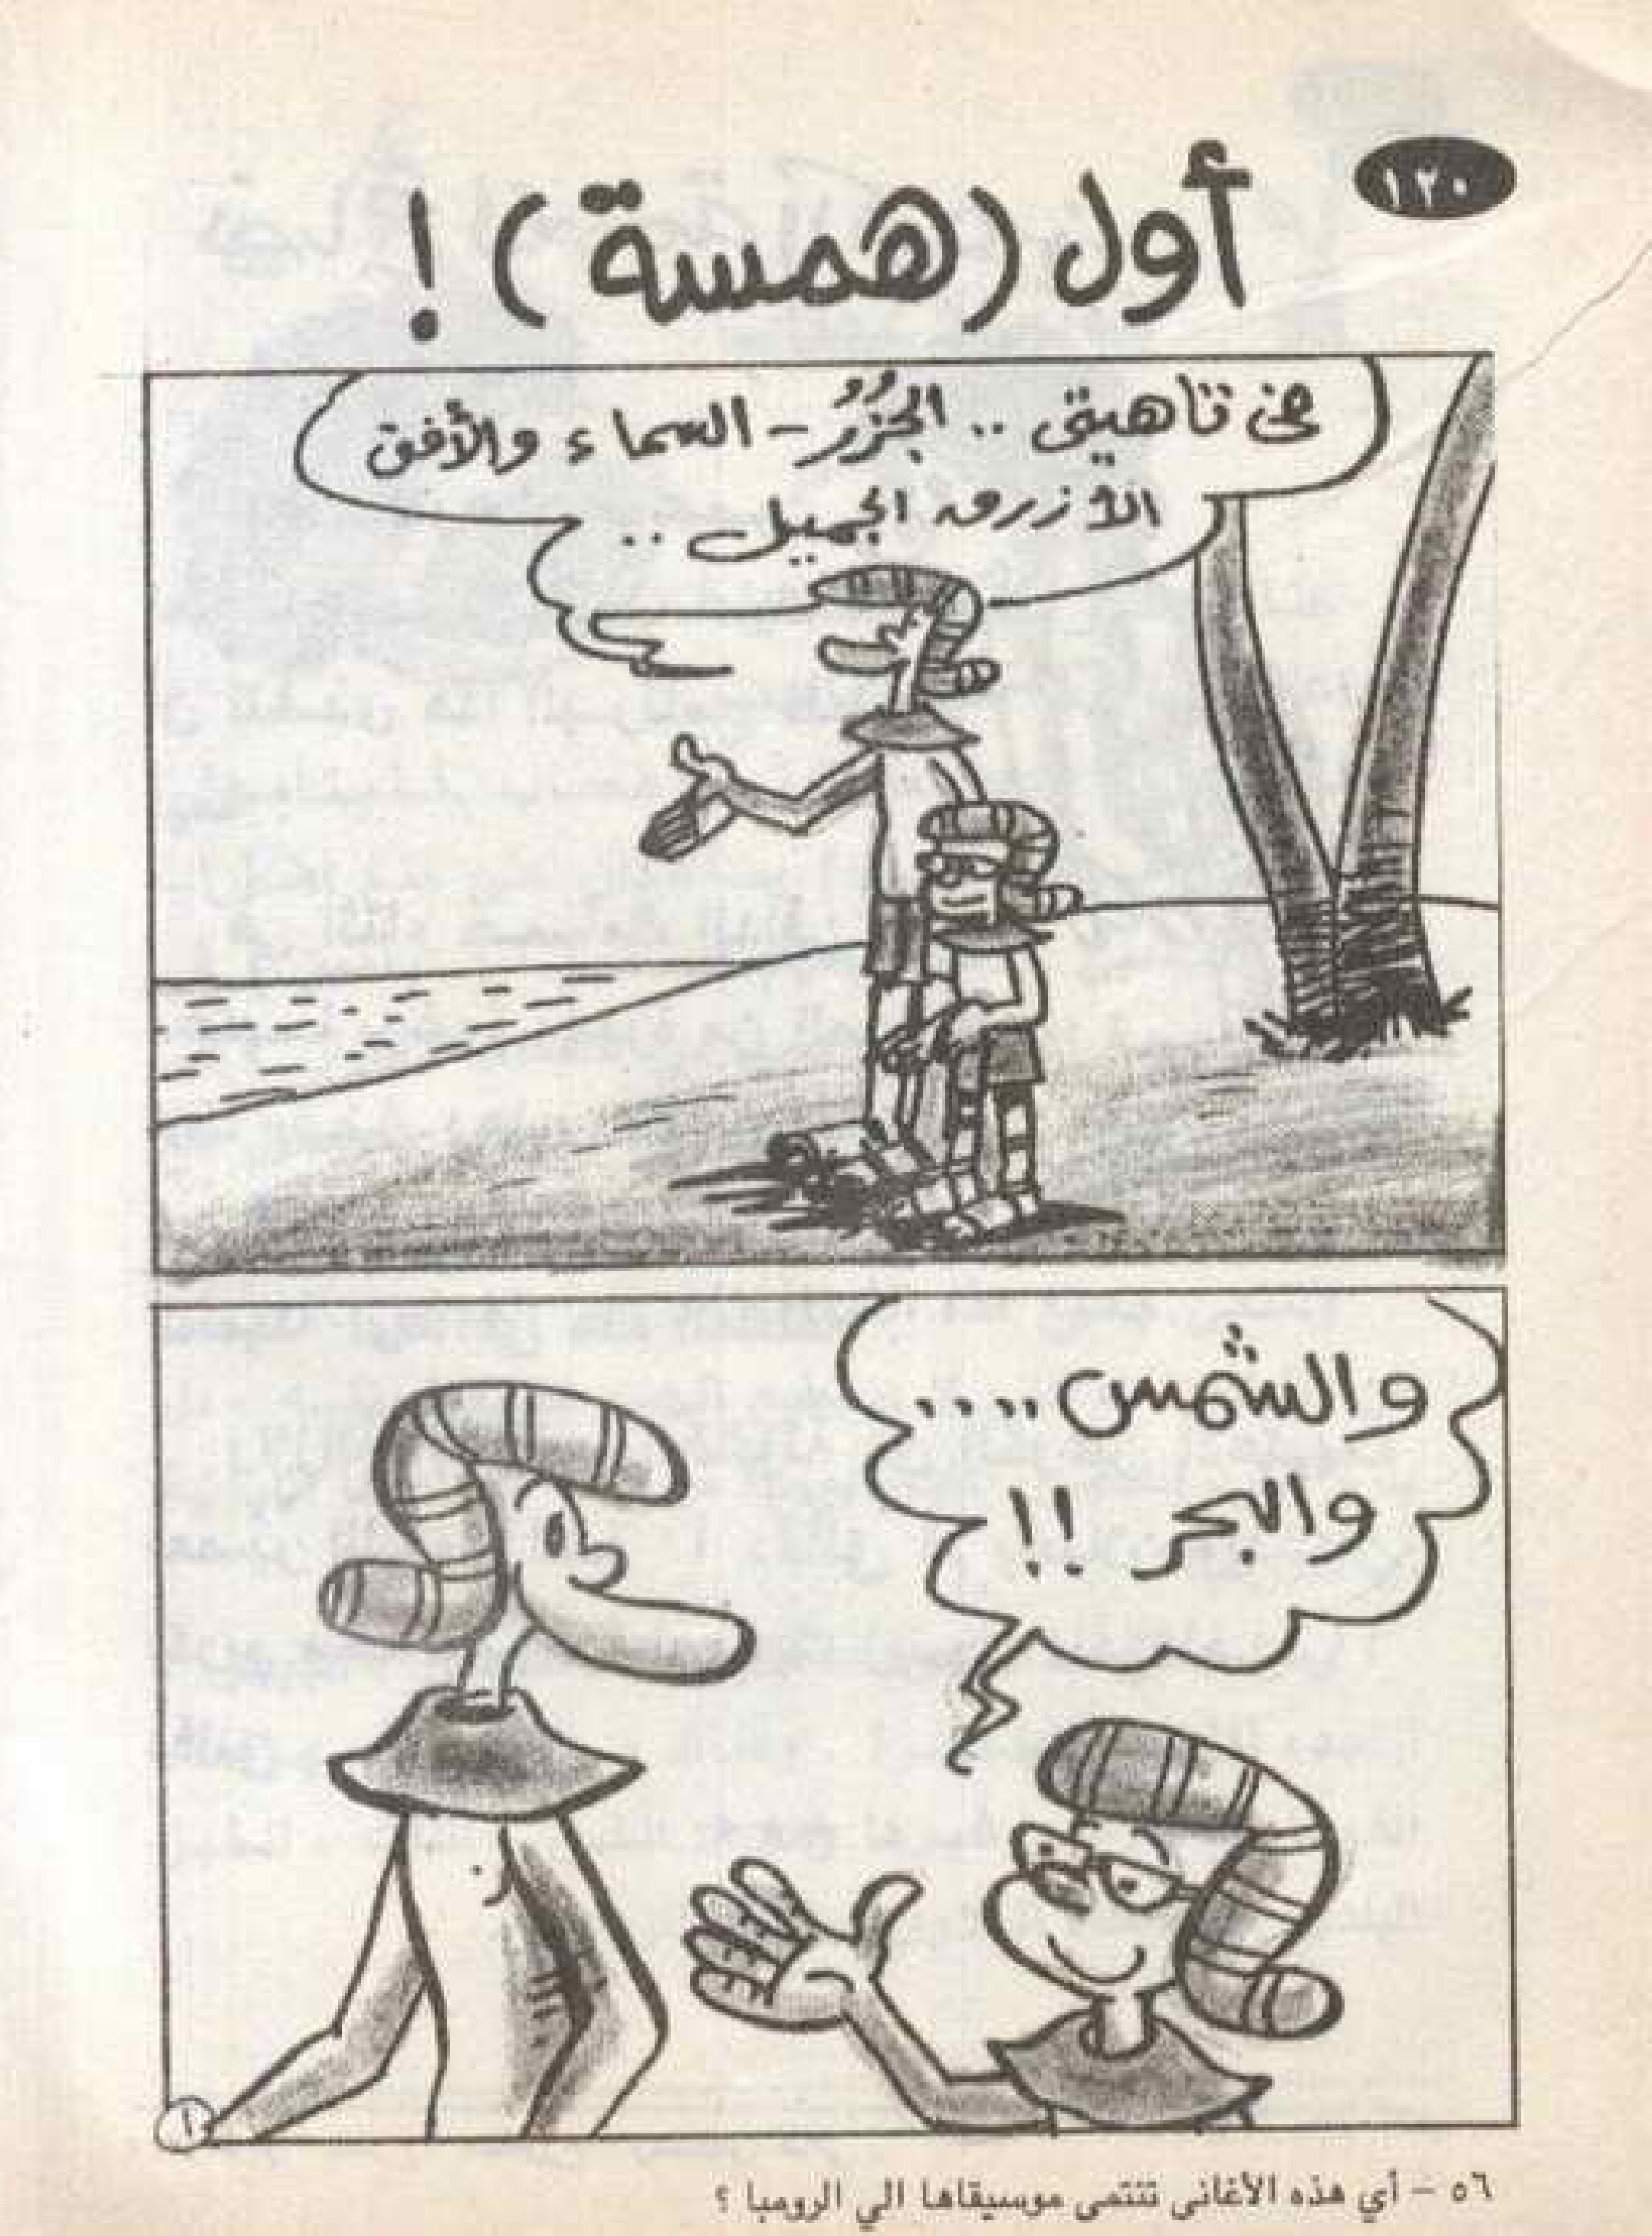 ١٢٠
أول (همسة) !
في تاهيتى .. الجُزُر - السماء والأفق
الأزرق الجميل ..
والشمس ....
والبحر !!
١
٥٦ - أي هذه الأغانى تنتمى موسيقاها الي الرومبا ؟